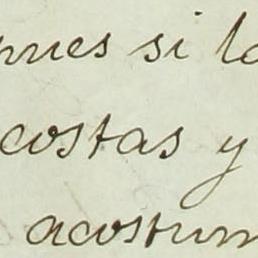 pues si lo
costas y
acostum